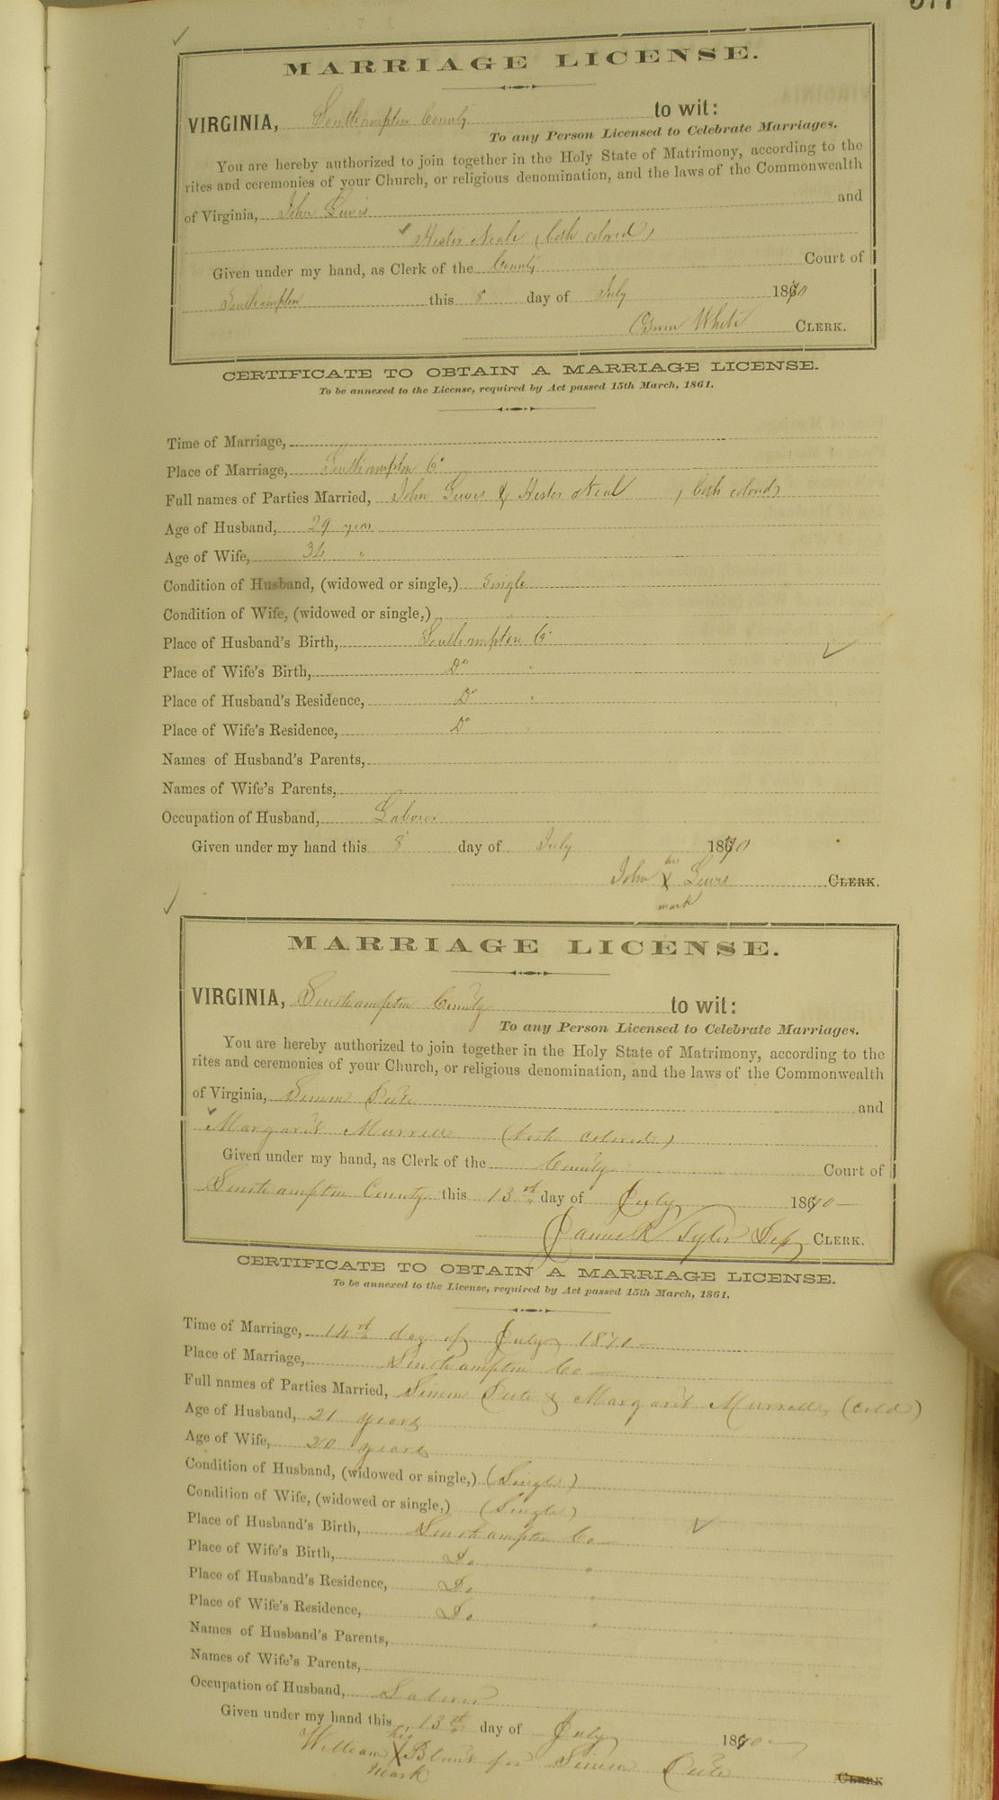 MARRIAGE LICENSE.
VIRGINIA, Southampton County to wit:
To any Person Licensed to Celebrate Marriages.
You are hereby authorized to join together in the Holy State of Matrimony, according to the
rites and ceremonies of your Church, or religious denomination, and the laws of the Commonwealth
of Virginia, John Lewis and
Hester Neale (both colored)
Given under my hand, as Clerk of the County Court of
Southampton this 8 day of July 1870
White CLERK.
CERTIFICATE TO OBTAIN A MARRIAGE LICENSE.
To be annexed to the License, required by Act passed 15th March, 1861.
Time of Marriage,
Place of Marriage, Southampton Co
Full names of Parties Married, John Lewis & Hester , both colored
Age of Husband, 29 years
Age of Wife, 34 "
Condition of Husband, (widowed or single,) Single
Condition of Wife, (widowed or single,)
Place of Husband's Birth, Southampton Co
Place of Wife's Birth, Do
Place of Husband's Residence, Do
Place of Wife's Residence, Do
Names of Husband's Parents,
Names of Wife's Parents,
Occupation of Husband, Laborer
Given under my hand this 8 day of July 1870
his
John X Lewis CLERK.
mark
MARRIAGE LICENSE.
VIRGINIA, Southampton County to wit:
To any Person Licensed to Celebrate Marriages.
You are hereby authorized to join together in the Holy State of Matrimony, according to the
rites and ceremonies of your Church, or religious denomination, and the laws of the Commonwealth
of Virginia, and
Margaret Murrell (both colored)
Given under my hand, as Clerk of the County Court of
Southampton County this 13th day of July 1870
R Tyler Dep CLERK.
CERTIFICATE TO OBTAIN A MARRIAGE LICENSE.
To be annexed to the License, required by Act passed 15th March, 1861.
Time of Marriage, 14th day of July 1870
Place of Marriage, Southampton Co
Full names of Parties Married, & Margaret Murrell (cold)
Age of Husband, 21 years
Age of Wife, 20 years
Condition of Husband, (widowed or single,) (Single)
Condition of Wife, (widowed or single,) (Single)
Place of Husband's Birth, Southampton Co
Place of Wife's Birth, Do
Place of Husband's Residence, Do
Place of Wife's Residence, Do
Names of Husband's Parents,
Names of Wife's Parents,
Occupation of Husband, Laborer
Given under my hand this 13th day of July 1870
his
William X Blunt for CLERK
mark